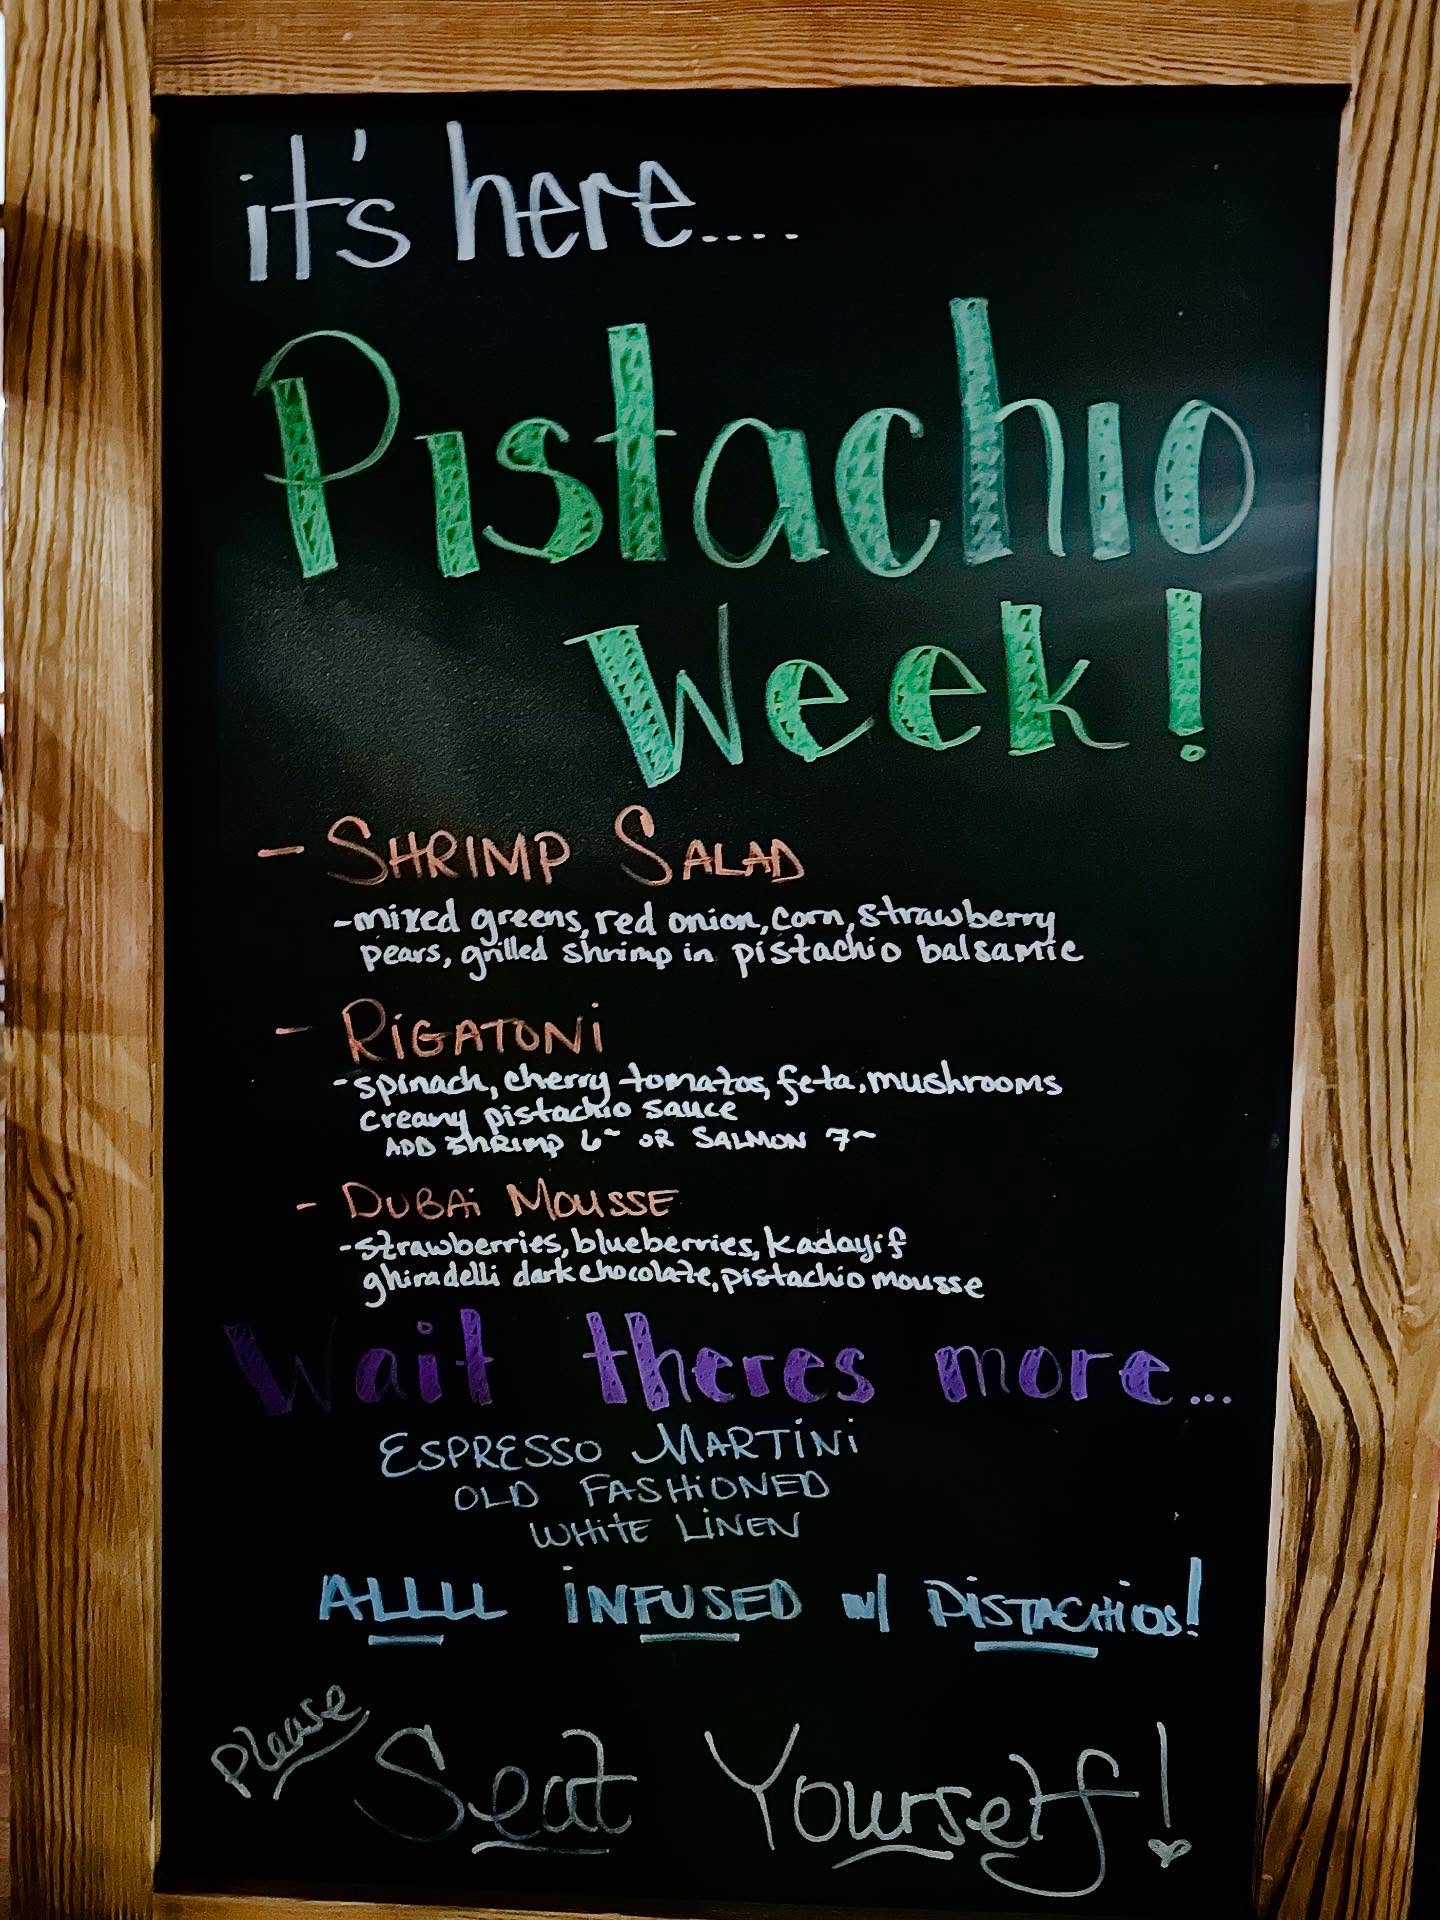 it's here....
Pistachio
Week!
- SHRIMP SALAD
- mixed greens, red onion, corn, strawberry
pears, grilled shrimp in pistachio balsamic
- RiGATONi
- spinach, cherry tomatos, feta, mushrooms
creamy pistachio sauce
ADD SHRIMP 6~ OR SALMON 7~
- DUBAi MOUSSE
- strawberries, blueberries, kadayif
ghiradelli dark chocolate, pistachio mousse
Wait theres more...
ESPRESSO MARTiNi
OLD FASHiONED
WHitE LiNEN
ALLLL iNFUSED w/ PiSTACHiOS!
Please Seat Yourself!